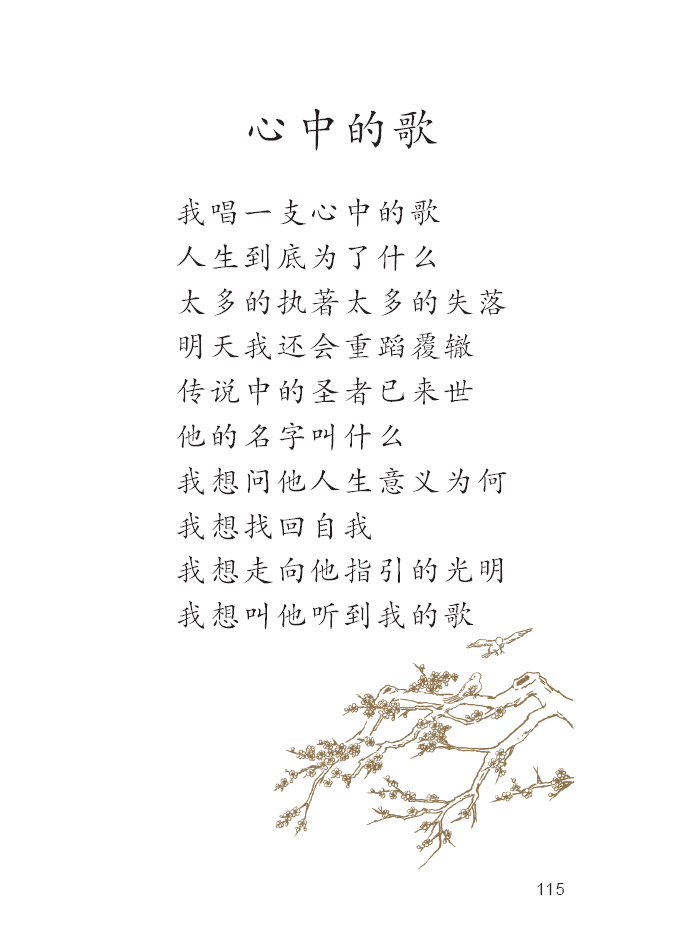 心中的歌
我唱一支心中的歌
人生到底为了什么
太多的执著太多的失落
明天我还会重蹈覆辙
传说中的圣者已来世
他的名字叫什么
我想问他人生意义为何
我想找回自我
我想走向他指引的光明
我想叫他听到我的歌
115